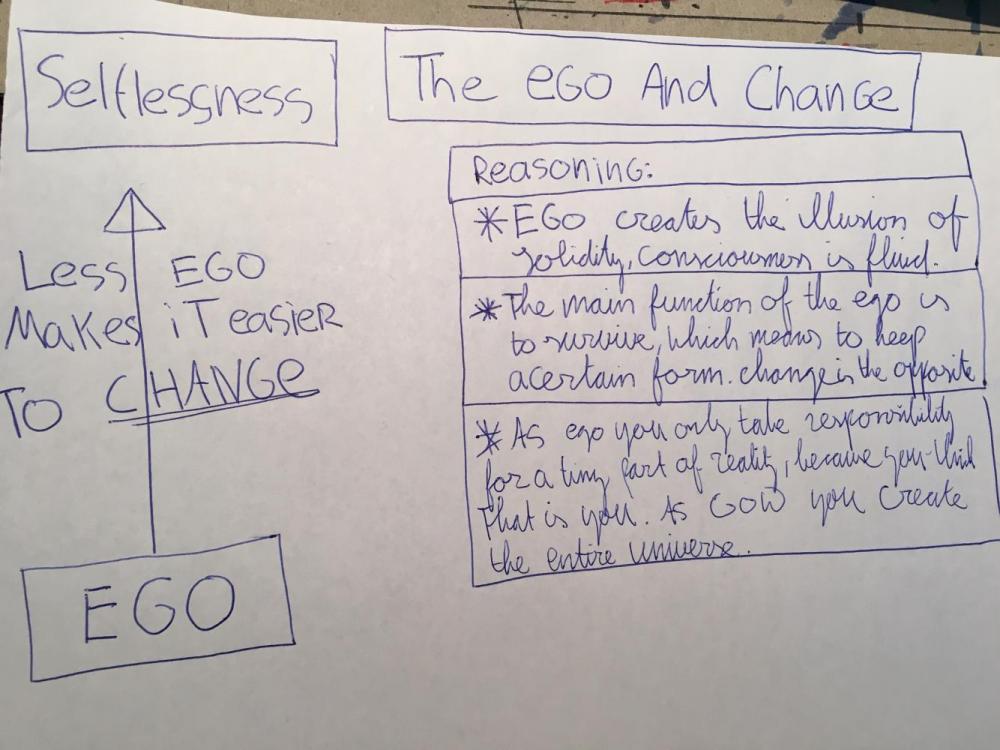 Selflessness
The EGO And Change
Less EGO
Makes iT easier
To CHANGE
EGO
Reasoning:
* EGO creates the illusion of
solidity, consciousness is fluid.
* The main function of the ego is
to survive, which means to keep
a certain form. change is the opposite
* As ego you only take responsibility
for a tiny part of reality, because you think
that is you. As GOD you create
the entire universe.